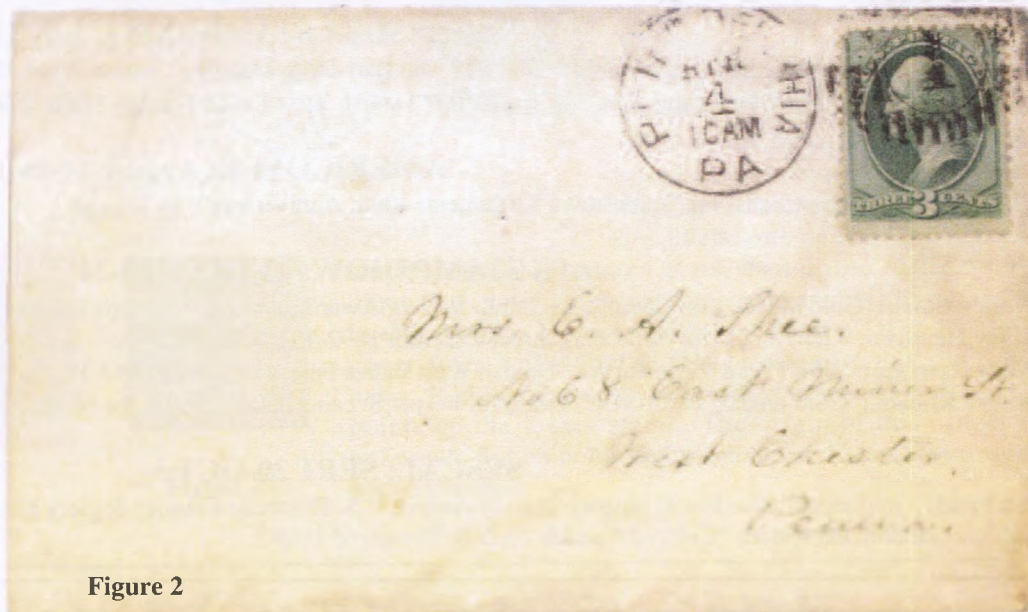 APR
4
10AM
PA
1
THREE 3 CENTS
Mrs. E. A. Shee.
No 68 East Miner St.
West Chester,
Penna.
Figure 2